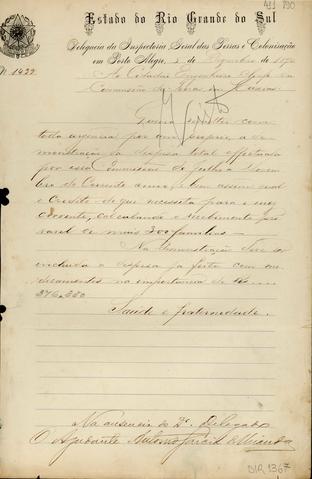 411 790
Estado do Rio Grande do Sul
Delegacia da Inspectoria Geral das Terras e Colonisação
em Porto Alegre, 2 de Dezembro de 1890
N. 1422
Ao Cidadão Engenheiro Chefe da
Commissão de Terras em Caxias
toda urgencia por um proprio, a de-
monstração da despeza total effectuada
por essa Commissão de Julho a Novem-
bro do corrente anno, e bem assim qual
o credito de que necessita para o mez
corrente, calculando o recebimento pro-
vavel de mais 300 familias.
Na demonstração deve ser
incluida a despeza já feita com
na importancia de
376.350
Saúde e fraternidade.
Na ausencia do Dr. Delegado
O Ajudante Antonio Garcia de Miranda
DIR 1367